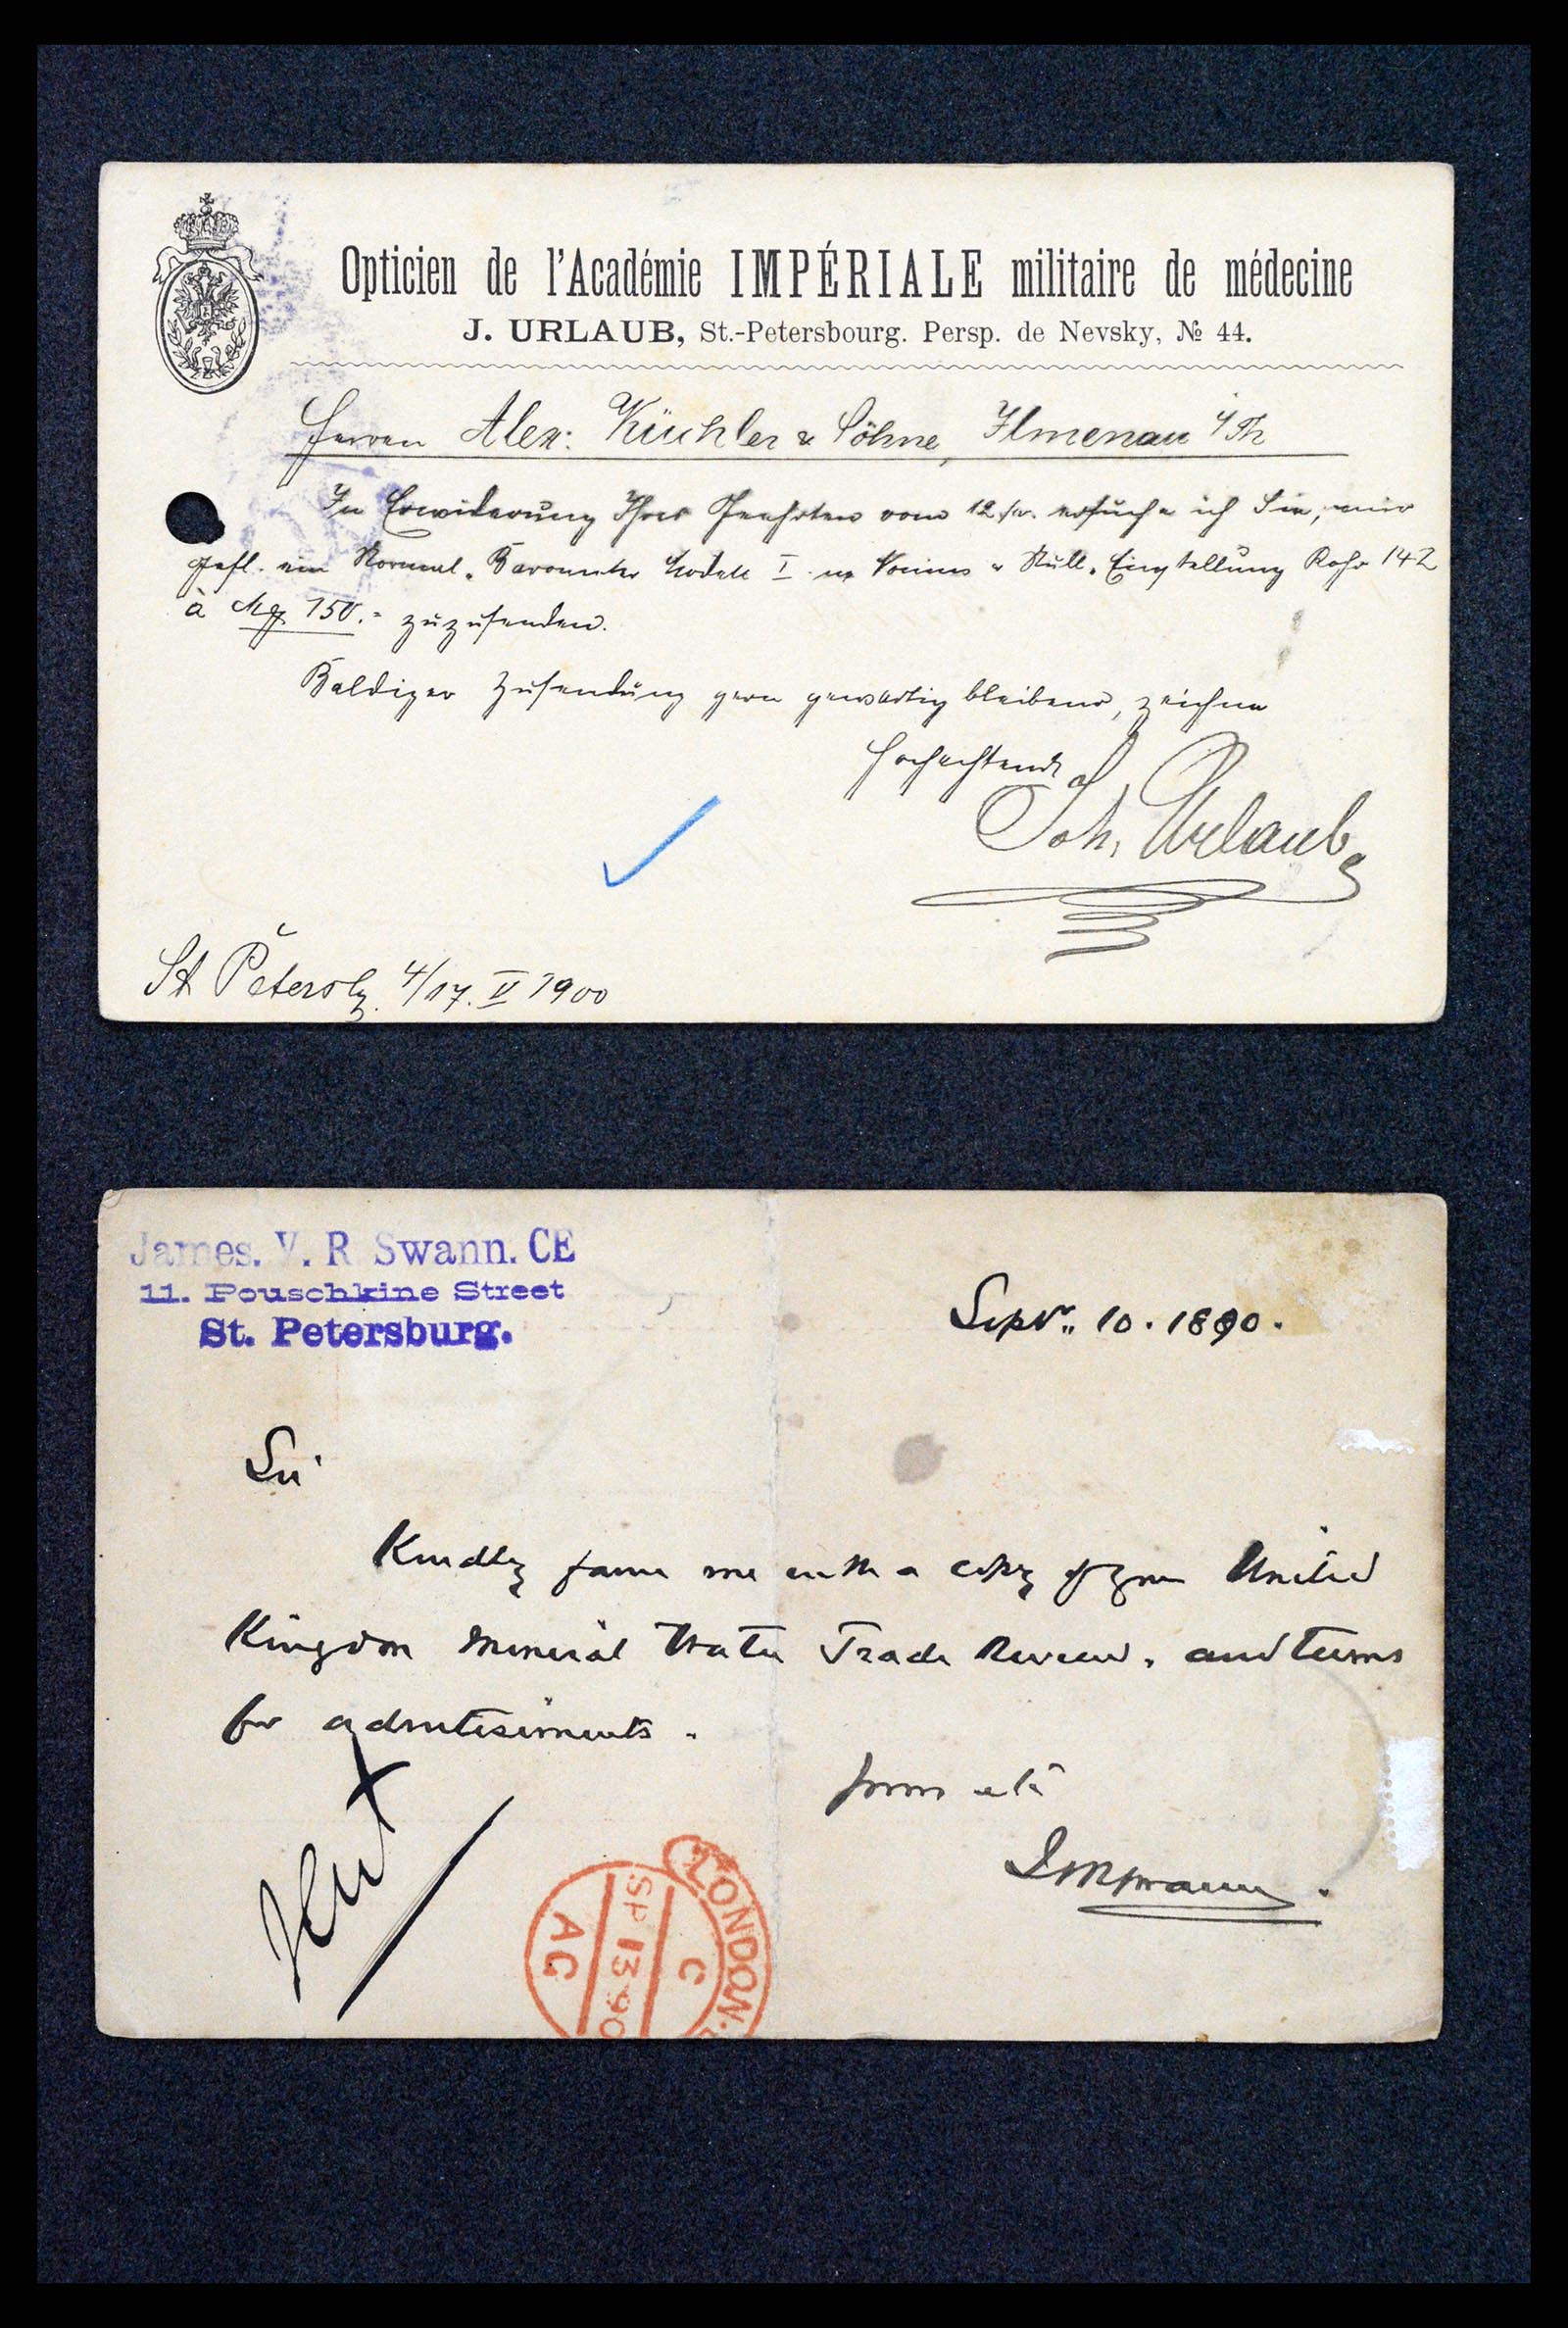 Opticien de l'Académie IMPÉRIALE militaire de médecine
J. URLAUB, St.-Petersbourg. Persp. de Nevsky, № 44.
Herren Alex: Küchler & Söhne, Ilmenau i/Th
In Erwiderung Ihres Geehrten vom 12. ersuche ich Sie, mir
gefl. ein Normal-Barometer Modell I m Nonius u Null-Einstellung Rohr 142
à Mg 150.- zuzusenden.
Baldiger Zusendung gern gewärtig bleibend, zeichne
Hochachtend
Joh. Urlaub
St Petersbg. 4/17. V 1900
James. V. R Swann. CE
11. Pouschkine Street
St. Petersburg.
Sepr. 10. 1890.
Sir
Kindly favour me with a copy of your United
Kingdom Mineral Water Trade Review, and terms
for advertisements.
Yours etc
Swann.
LONDON.
C
SP 13 90
AC